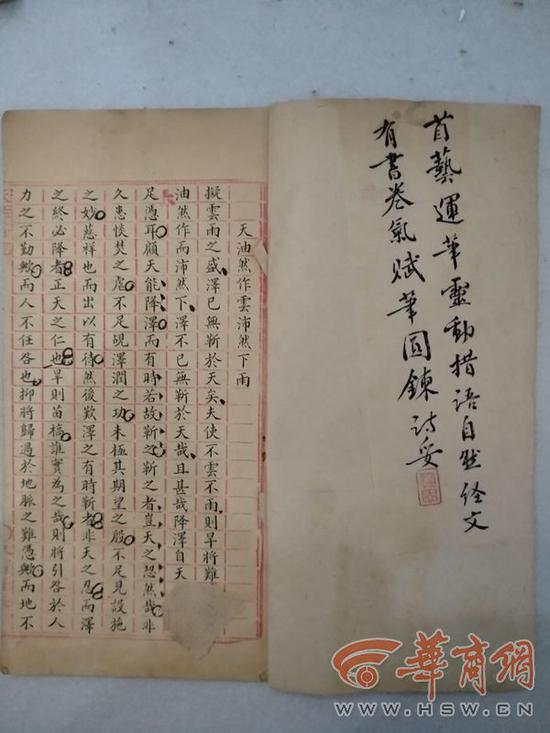 首藝運筆靈動措語自然經文
有書卷氣賦筆圓鍊詩妥
天油然作雲沛然下雨
擬雲雨之盛澤已無靳於天矣夫使不雲不雨則旱將難
油然作而沛然下澤不已無靳於天哉且甚哉降澤自天
足憑耳顧天能降澤而有時若故靳之靳之者豈天之忍然哉非
久患惔焚之虐不足硯澤澗之功未極其期望之殷不足見設施
之妙慈祥也而出以有待然後歎澤之有時靳者非天之忍而澤
之終必降者正天之仁也旱則苗槁誰實為之哉則將引咎於人
力之不勤歟而人不任咎也抑將歸過於地脈之難憑歟而地不
華商網
WWW.HSW.CN